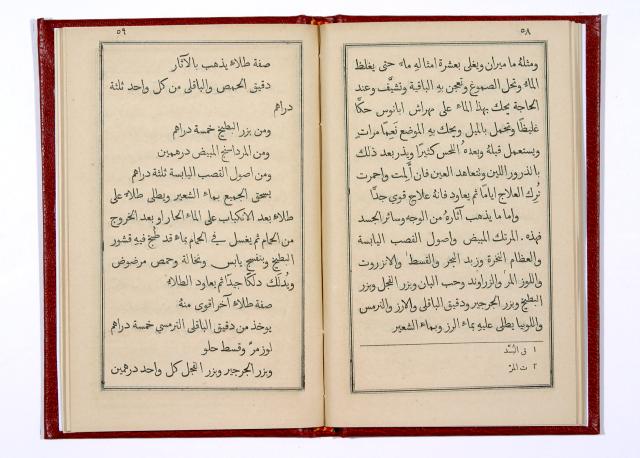 ٥٨
ومثله ماميران ويغلى بعشرة امثاله ماء حتى يغلظ
الماء وتحل الصموغ وتعجن به الباقية وتشيَّف وعند
الحاجة يحك بهذا الماء على مهراش ابانوس حكًّا
غليظًا وتحمل بالميل ويحك به الموضع نَعِمًا مرات
ويستعمل قبله وبعده اللحس كثيرًا ويذر بعد ذلك
بالذرور اللين وتتعاهد العين فان أَلِمت واحمرت
تُرك العلاج ايامًا ثم يعاود فانه علاج قوي جدًّا
واما ما يذهب آثاره من الوجه وسائر الجسد
فهذه. المرتك المبيض واصول القصب اليابسة
والعظام النخرة وزبد البحر والقسط والانزروت
واللوز المر والزراوند وحب البان وبزر الفجل وبزر
البطيخ وبزر الجرجير ودقيق الباقلى والارز والترمس
واللوبيا يطلى عليه بماء الرز وبماء الشعير
١ في
٢ ت المرّ
٥٩
صفة طلاء يذهب بالآثار
دقيق الحمص والباقلى من كل واحد ثلثة
دراهم
ومن بزر البطيخ خمسة دراهم
ومن المرداسنج المبيض درهمين
ومن اصول القصب اليابسة ثلثة دراهم
يسحق الجميع بماء الشعير ويطلى طلاء على
طلاء بعد الانكباب على الماء الحار او بعد الخروج
من الحمام ثم يغسل في الحمام بماء قد طُبخ فيه قشور
البطيخ وبنفسج يابس ونخالة وحمص مرضوض
ويُدلَك دلكًا جيدًا ثم يعاود الطلاء
صفة طلاء آخر اقوى منه
يوخذ من دقيق الباقلى الترمسي خمسة دراهم
لوز مرّ وقسط حلو
وبزر الجرجير وبزر الفجل كل واحد درهمين